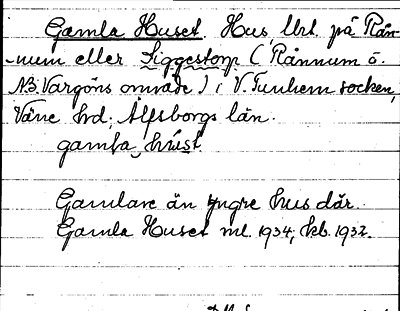 Gamla Huset. Hus, lbt. på Rån-
-num eller Siggestorp (Rånnum ö.
NB. Vargöns område) i V. Tunhem socken,
Väne hd; Älfsborgs län.
gamla hust.
Gamlare än yngre hus där.
Gamla Huset ml. 1934; kb. 1932.